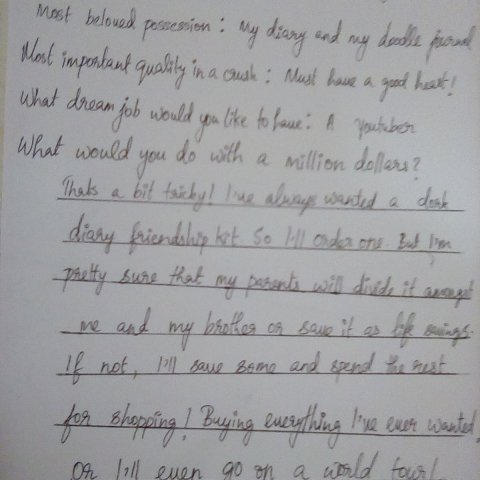 Most beloved possession : My diary and my doodle journal
Most important quality in a crush : Must have a good heart!
What dream job would you like to have : A youtuber
What would you do with a million dollars?
Thats a bit tricky! I've always wanted a dork
diary friendship kit So I'll order one. But I'm
pretty sure that my parents will divide it amongst
me and my brother or save it as life savings.
If not, I'll save some and spend the rest
for shopping! Buying everything I've ever wanted,
Or I'll even go on a world tour!